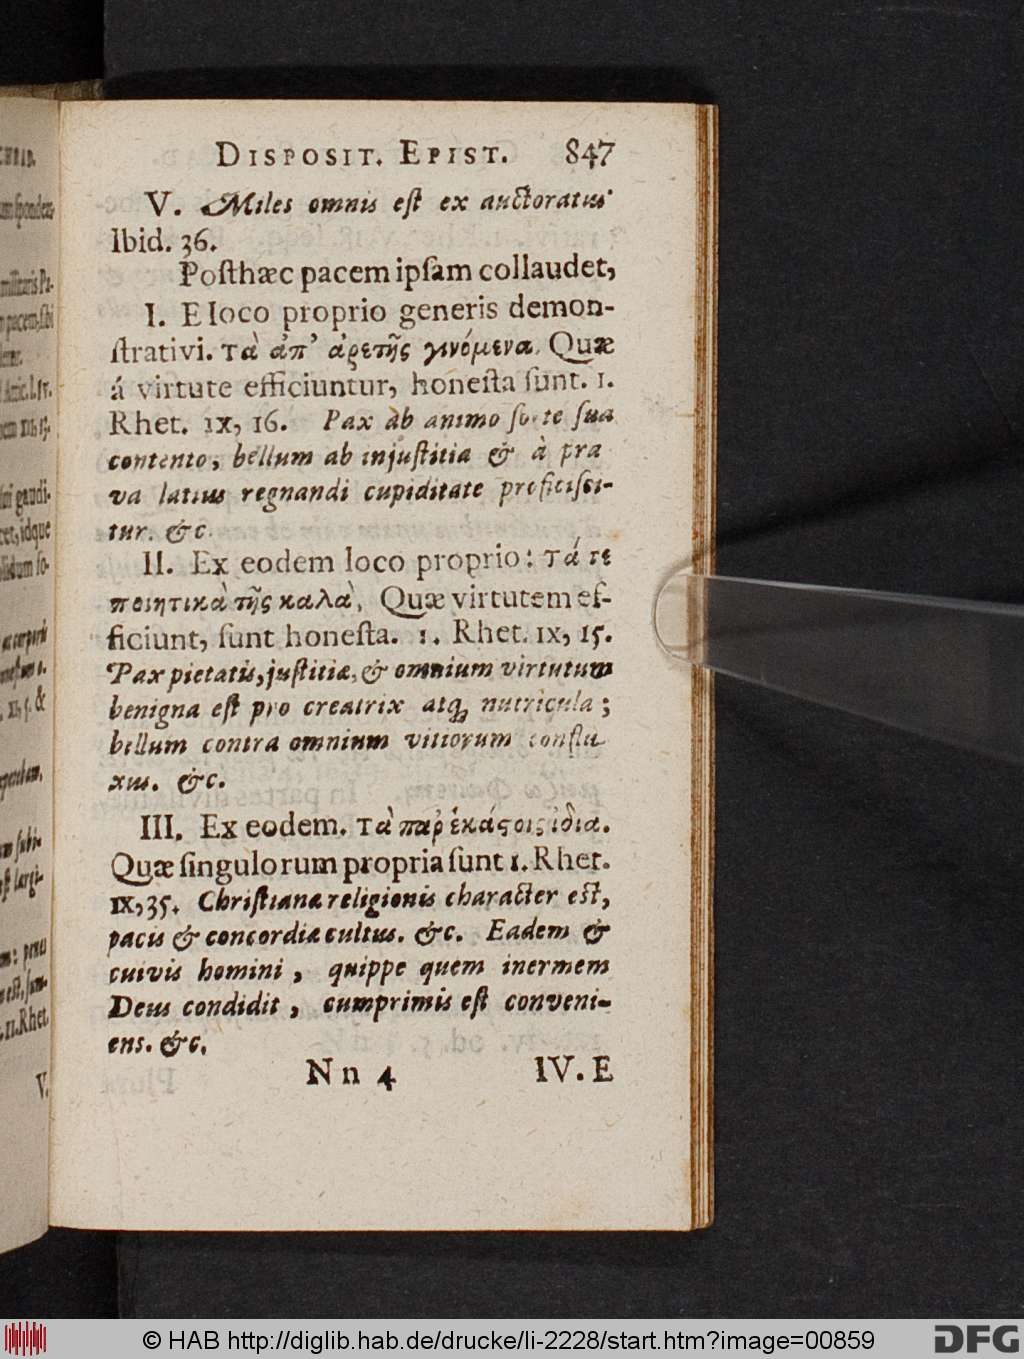 DISPOSIT. EPIST. 847
V. Miles omnis eſt ex auctoratus
Ibid. 36.
Poſthæc pacem ipſam collaudet,
I. E loco proprio generis demon-
ſtrativi. τὰ ἀπ' ἀρετῆς γινόμενα. Quæ
á virtute efficiuntur, honeſta ſunt. 1.
Rhet. IX, 16. Pax ab animo ſorte ſua
contento, bellum ab injuſtitia & à pra
va latius regnandi cupiditate proficiſci-
tur. &c.
II. Ex eodem loco proprio: τά τε
ποιητικὰ τῆς καλὰ, Quæ virtutem ef-
ficiunt, ſunt honeſta. 1. Rhet. IX, 15.
Pax pietatis, juſtitiæ, & omnium virtutum
benigna eſt pro creatrix atq; nutricula;
bellum contra omnium vitiorum conflu
xus. &c.
III. Ex eodem. τὰ παρ' ἑκάςοις ἰδια.
Quæ ſingulorum propria ſunt 1. Rhet.
IX, 35. Chriſtianæ religionis character eſt,
pacis & concordiæ cultus. &c. Eadem &
cuivis homini, quippe quem inermem
Deus condidit, cumprimis eſt conveni-
ens. &c.
Nn 4 IV. E
© HAB http://diglib.hab.de/drucke/li-2228/start.htm?image=00859
DFG